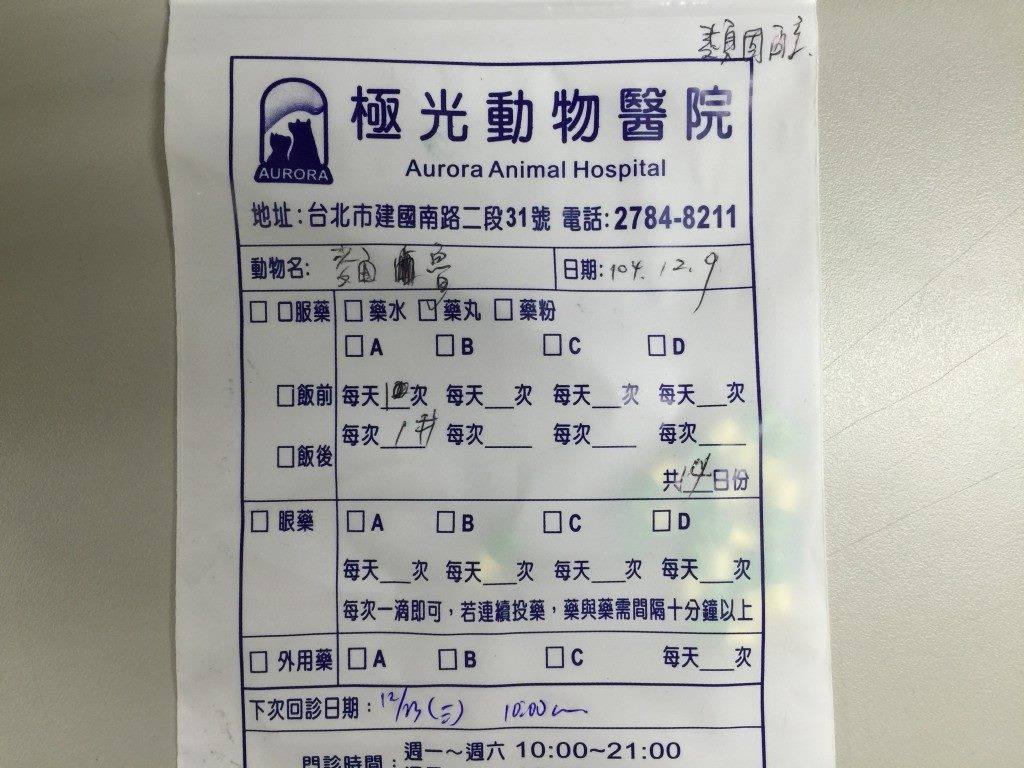 類固醇
極光動物醫院
AURORA
Aurora Animal Hospital
地址:台北市建國南路二段31號 電話:2784-8211
動物名: 日期:104.12.9
□ □服藥 □ 藥水 □ 藥丸 □ 藥粉
□ A □ B □ C □ D
□飯前 每天1次 每天__次 每天__次 每天__次
每次 1 每次___ 每次___ 每次___
□飯後
共14日份
□ 眼藥 □ A □ B □ C □ D
每天__次 每天__次 每天__次 每天__次
每次一滴即可,若連續投藥,藥與藥需間隔十分鐘以上
□ 外用藥 □ A □ B □ C 每天__次
下次回診日期:12/23(三) 10:00
門診時間: 週一~週六 10:00~21:00